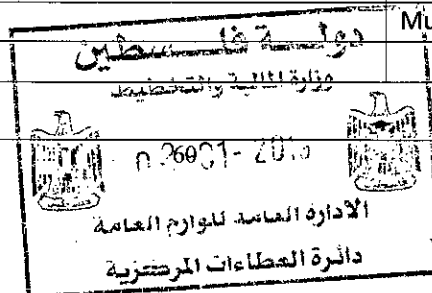 Mu
دولة فلسطين
وزارة المالية والتخطيط
الادارة العامة للوازم العامة
دائرة العطاءات المركزية